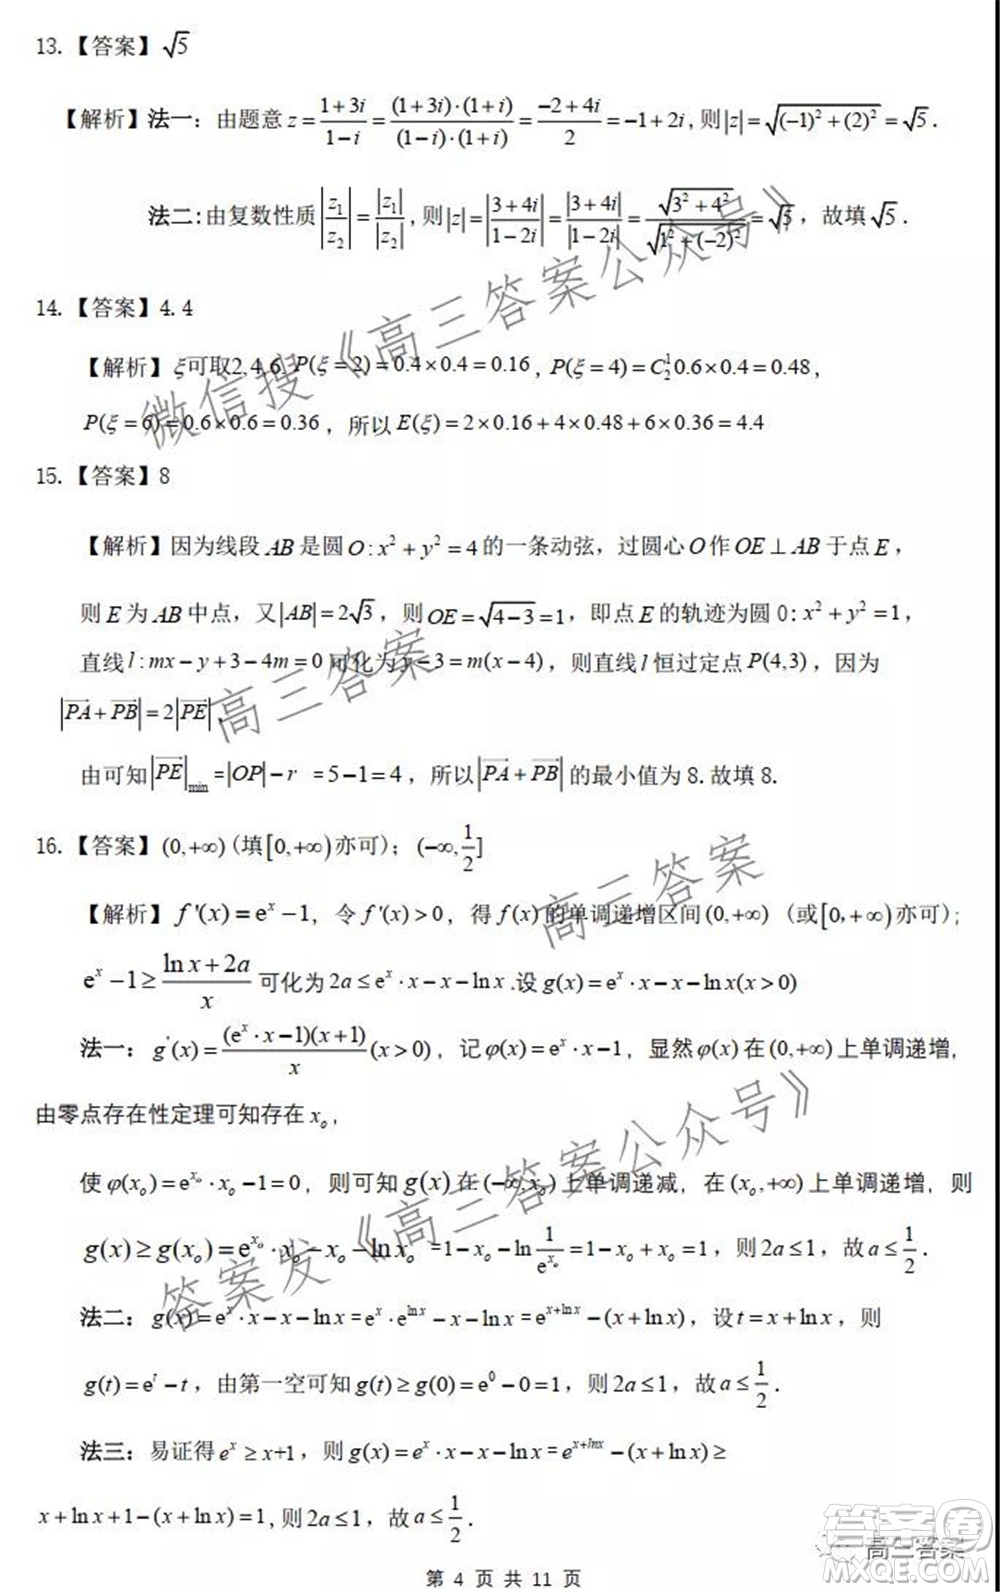 13.【答案】√5
【解析】法一：由题意 z = (1+3i)/(1−i) = ((1+3i)·(1+i))/((1−i)·(1+i)) = (−2+4i)/2 = −1+2i, 则|z| = √((−1)²+(2)²) = √5．
法二：由复数性质 |z₁/z₂| = |z₁|/|z₂|, 则|z| = |(3+4i)/(1−2i)| = |3+4i|/|1−2i| = √(3²+4²)/√(1²+(−2)²) = √5，故填√5．
14.【答案】4.4
【解析】ξ可取2,4,6. P(ξ=2)=0.4×0.4=0.16，P(ξ=4)=C₂¹0.6×0.4=0.48，
P(ξ=6)=0.6×0.6=0.36，所以 E(ξ)=2×0.16+4×0.48+6×0.36=4.4
15.【答案】8
【解析】因为线段 AB 是圆 O：x²+y²=4 的一条动弦，过圆心 O 作 OE⊥AB 于点 E，
则 E 为 AB 中点，又|AB|=2√3，则 OE=√(4−3)=1，即点 E 的轨迹为圆 O：x²+y²=1，
直线 l：mx−y+3−4m=0 可化为 y−3=m(x−4)，则直线 l 恒过定点 P(4,3)，因为
|PA+PB|=2|PE|，
由可知|PE|min =|OP|−r =5−1=4，所以|PA+PB|的最小值为 8.故填 8.
16.【答案】(0,+∞)(填[0,+∞)亦可)；(−∞,1/2]
【解析】f'(x)=eˣ−1，令 f'(x)>0，得 f(x)的单调递增区间(0,+∞) (或[0,+∞)亦可)；
eˣ−1≥(ln x+2a)/x 可化为 2a≤eˣ·x−x−ln x .设 g(x)=eˣ·x−x−ln x(x>0)
法一：g'(x)=((eˣ·x−1)(x+1))/x (x>0)，记 φ(x)=eˣ·x−1，显然 φ(x) 在(0,+∞)上单调递增，
由零点存在性定理可知存在 x₀，
使 φ(x₀)=e^(x₀)·x₀−1=0，则可知 g(x)在(−∞,x₀)上单调递减，在(x₀,+∞)上单调递增，则
g(x)≥g(x₀)=e^(x₀)·x₀−x₀−ln x₀ =1−x₀−ln(1/e^(x₀))=1−x₀+x₀=1，则 2a≤1，故 a≤1/2．
法二：g(x)=eˣ·x−x−ln x=eˣ·e^(ln x)−x−ln x=e^(x+ln x)−(x+ln x)，设 t=x+ln x，则
g(t)=eᵗ−t，由第一空可知 g(t)≥g(0)=e⁰−0=1，则 2a≤1，故 a≤1/2．
法三：易证得 eˣ≥x+1，则 g(x)=eˣ·x−x−ln x=e^(x+lnx)−(x+ln x)≥
x+ln x+1−(x+ln x)=1，则 2a≤1，故 a≤1/2．
第 4 页 共 11 页
微信搜《高三答案公众号》
高三答案
高三答案
答案发《高三答案公众号》
高三答案
答案圈
MXQE.COM